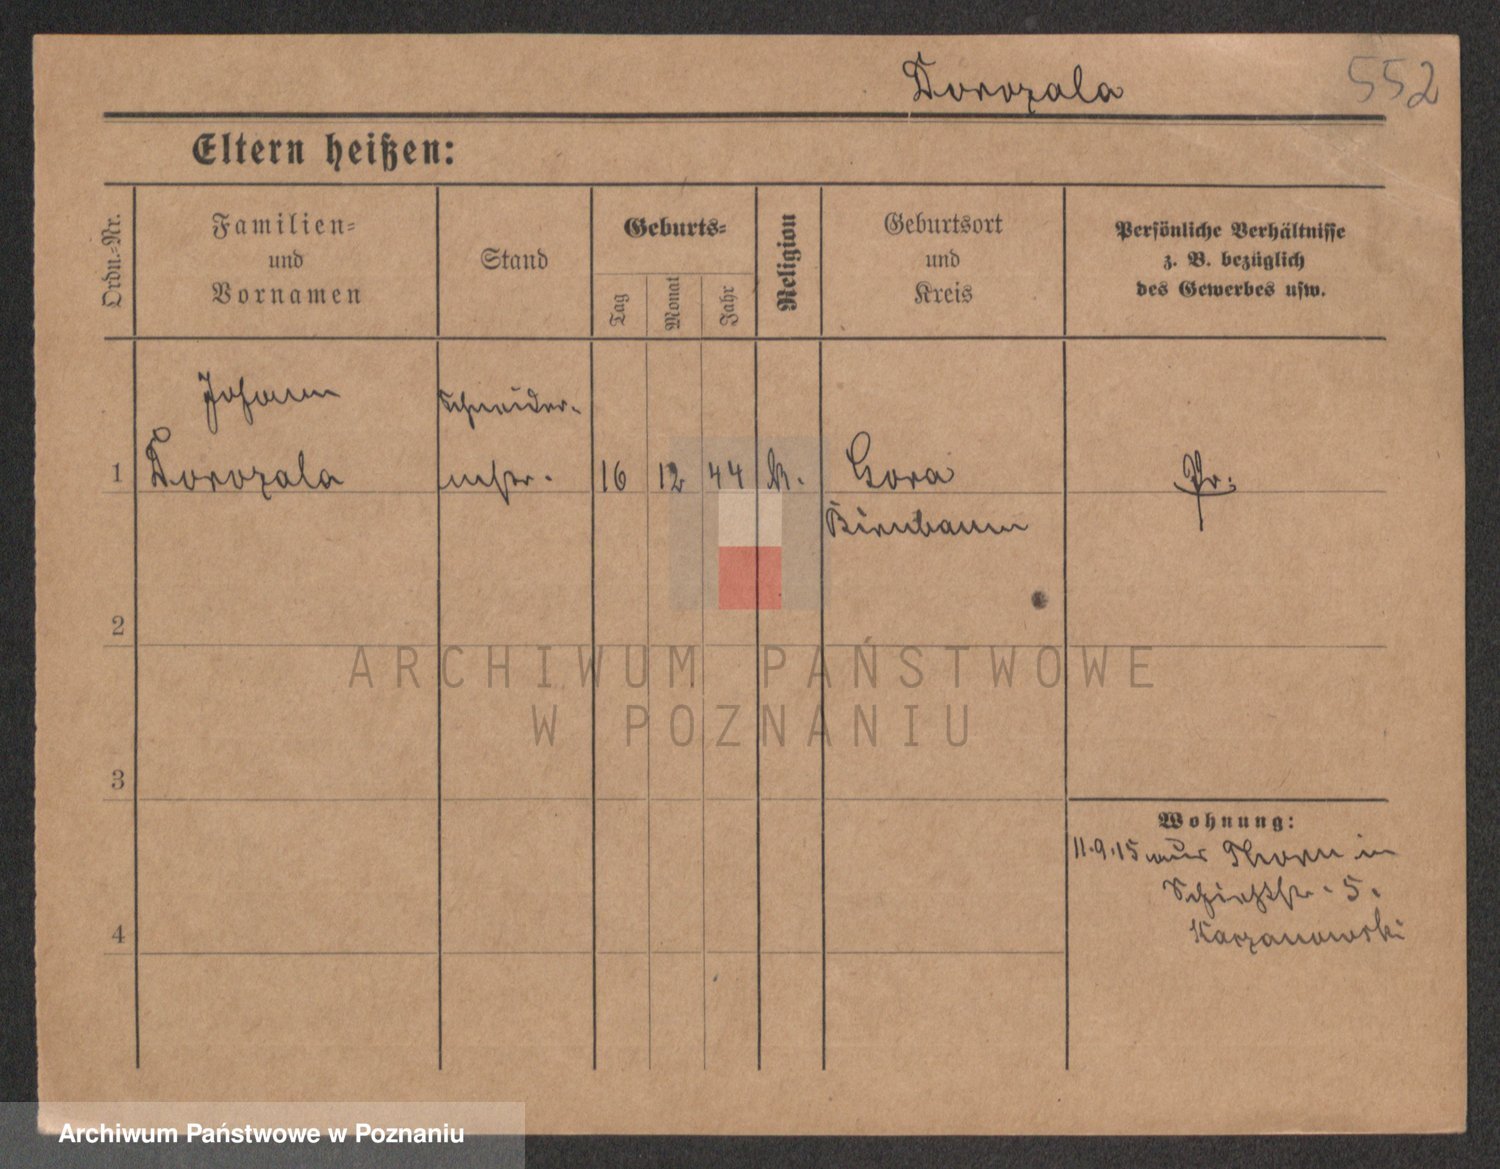 Dorozala
552
Eltern heißen:
Ordn.-Nr.
Familien-
und
Vornamen
Stand
Geburts-
Tag
Monat
Jahr
Religion
Geburtsort
und
Kreis
Persönliche Verhältnisse
z. B. bezüglich
des Gewerbes usw.
Johann
Schneider-
1 Dorozala mstr. 16 12 44 k. Gora Pr.
Birnbaum
2
3
4
Wohnung:
11.9.15 aus Thorn in
Schießstr. 5.
Kaczanowski
ARCHIWUM PAŃSTWOWE
W POZNANIU
Archiwum Państwowe w Poznaniu